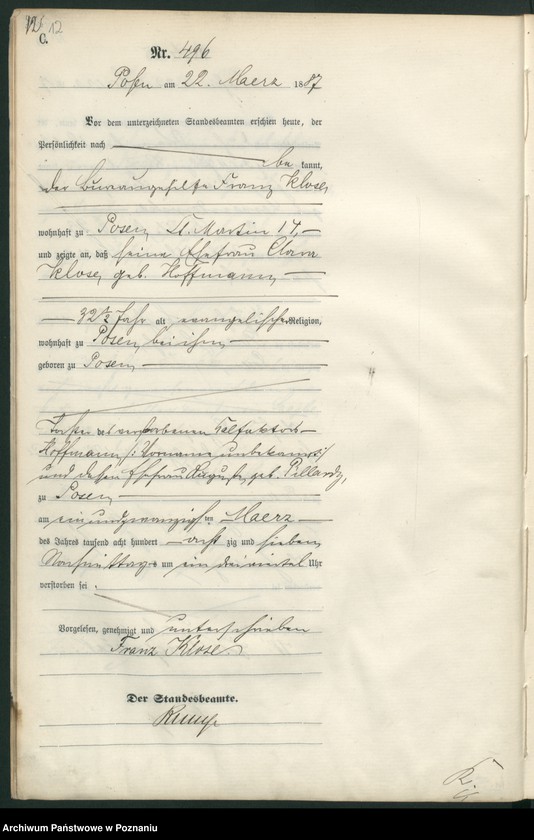 12
C.
Nr. 496
Posen am 22. Maerz 1887
Vor dem unterzeichneten Standesbeamten erschien heute, der
Persönlichkeit nach
be kannt,
der Bureaugehilfe Franz Klose,
wohnhaft zu Posen, St. Martin 17,
und zeigte an, daß seine Ehefrau Clara
Klose, geb. Hoffmann,
32 1/2 Jahr alt, evangelischer Religion,
wohnhaft zu Posen, bei ihm,
geboren zu Posen,
Tochter des verstorbenen
Hoffmann /: Vorname unbekannt :/
und dessen Ehefrau Auguste, geb.
zu Posen,
am ein und zwanzigsten Maerz
des Jahres tausend acht hundert acht zig und sieben
Nachmittags um ein dreiviertel Uhr
verstorben sei.
Vorgelesen, genehmigt und unterschrieben
Franz Klose
Der Standesbeamte.
Archiwum Państwowe w Poznaniu